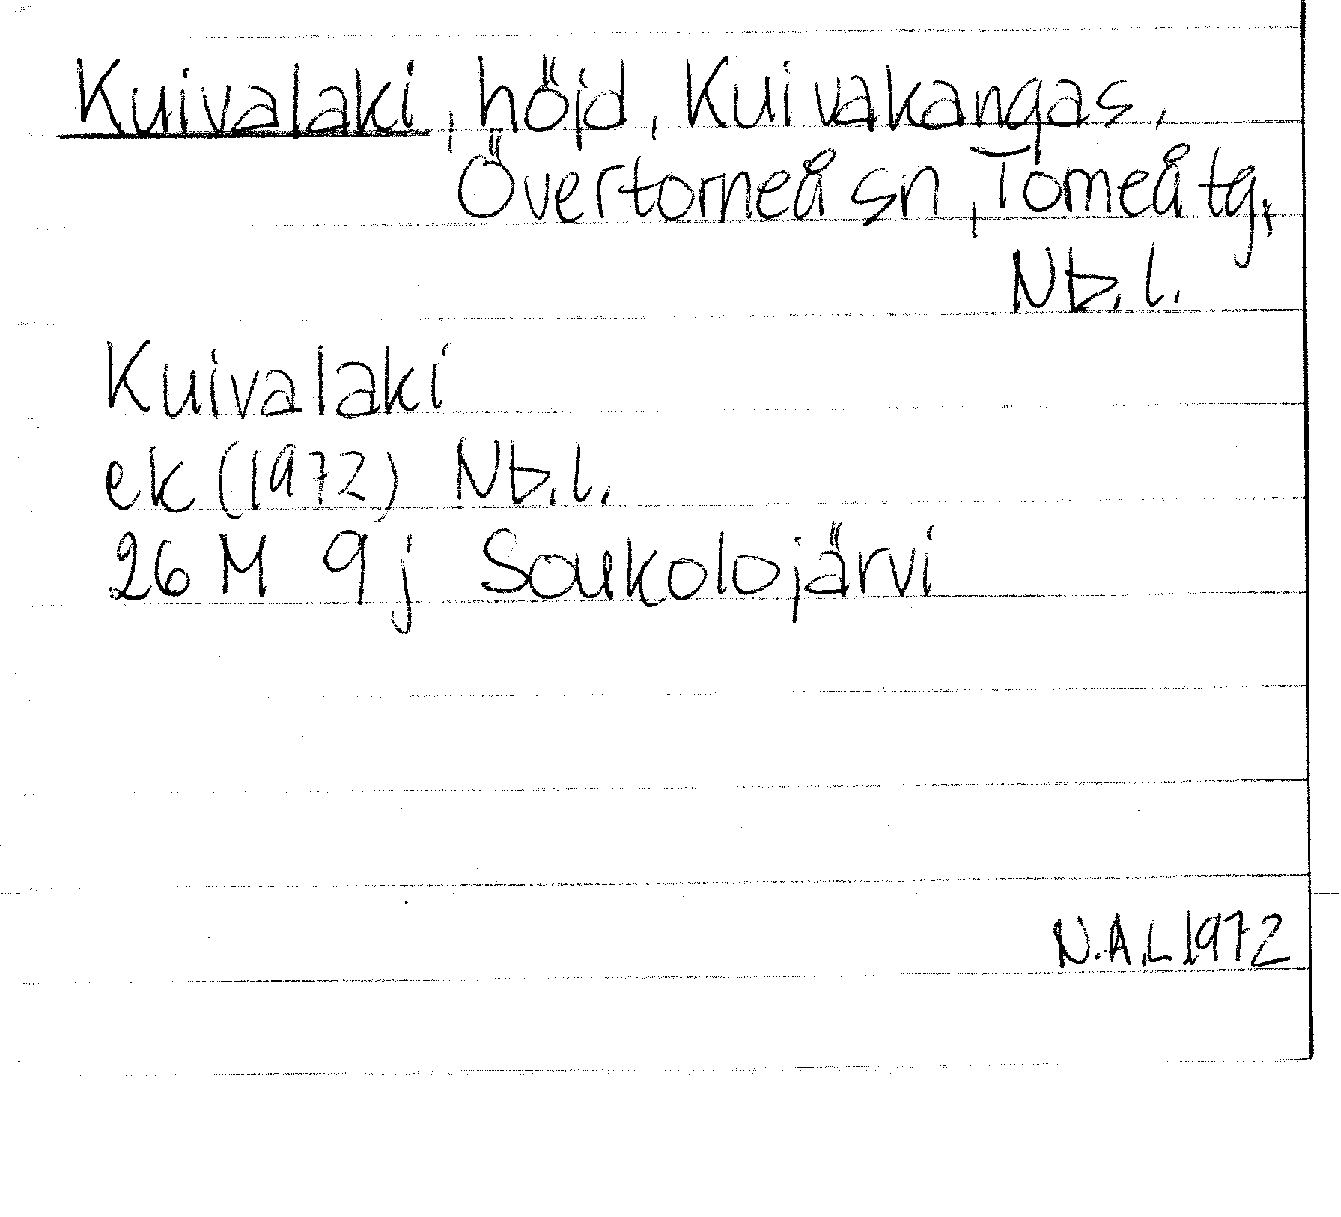 Kuivalaki, höjd, Kuivakangas,
Övertorneå sn, Torneå tg,
Nb.l.
Kuivalaki
ek (1972) Nb.l.
26 M 9 j Soukolojärvi
N.A.L 1972